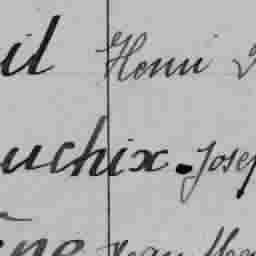 il Henri
uchix. Josep
ène Jean Mar